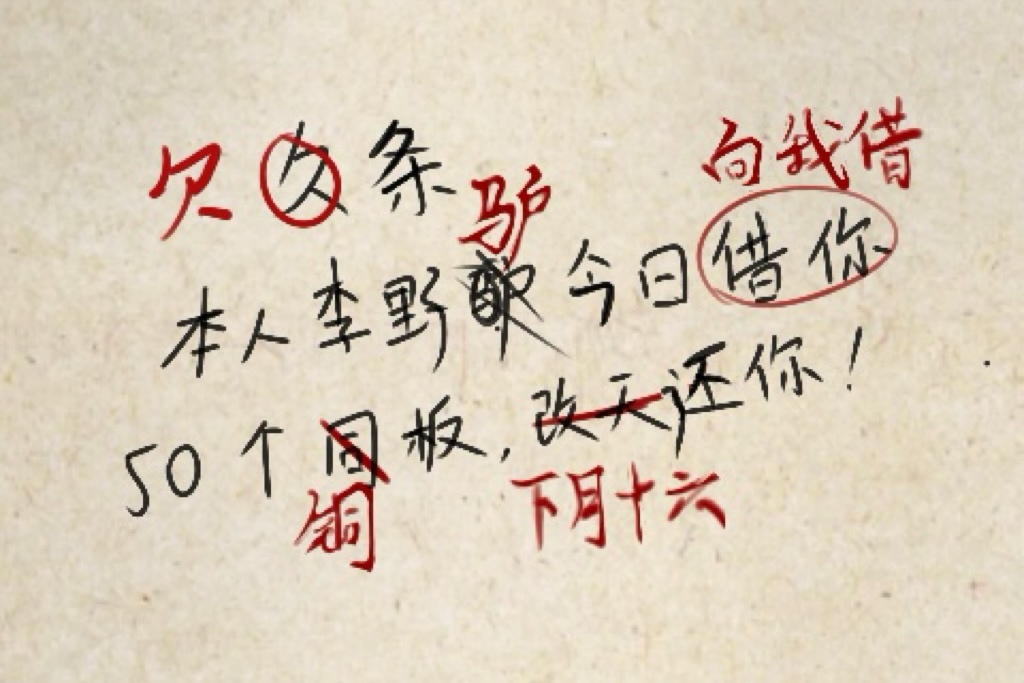 欠久条
驴
向我借
本人李野 今日借你
50个同板,改天还你!
铜
下月十六